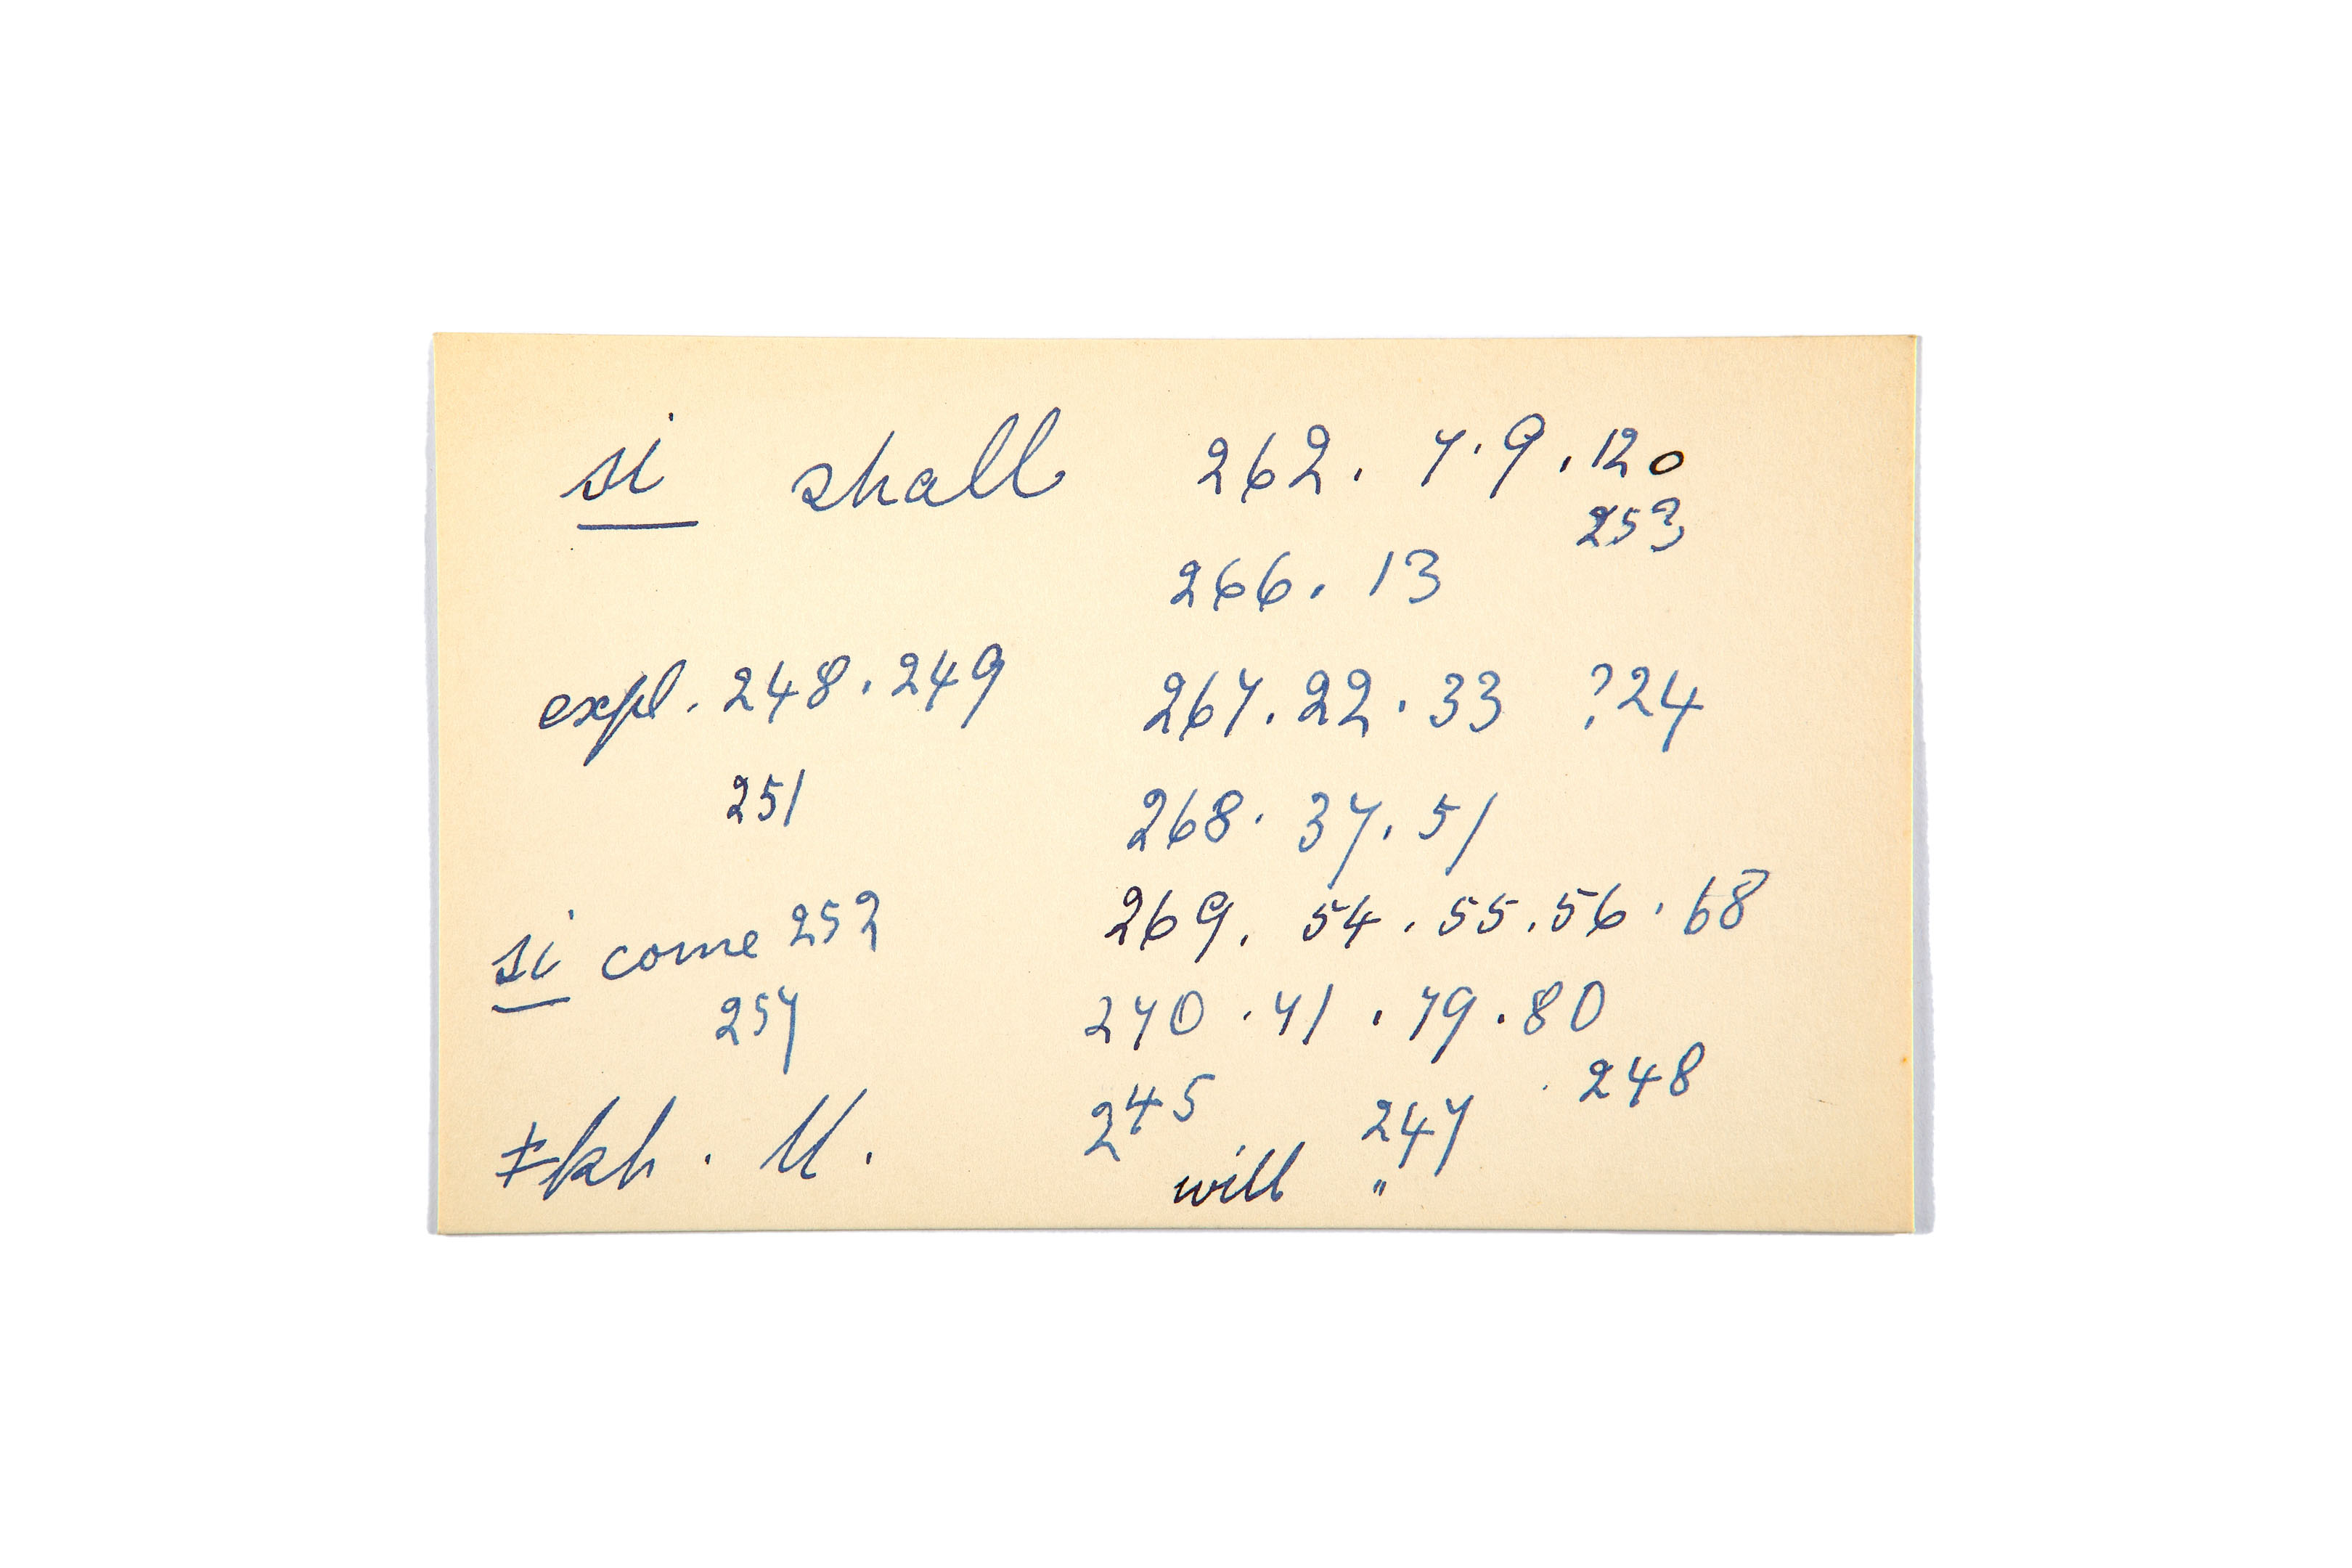 si shall 262. 7.9.120
253
266. 13
expl. 248.249 267.22.33 ?24
251 268. 37.51
si come 252 269. 54.55.56.68
257 270.71.79.80
245 247 248
ǂkh. ll. will "